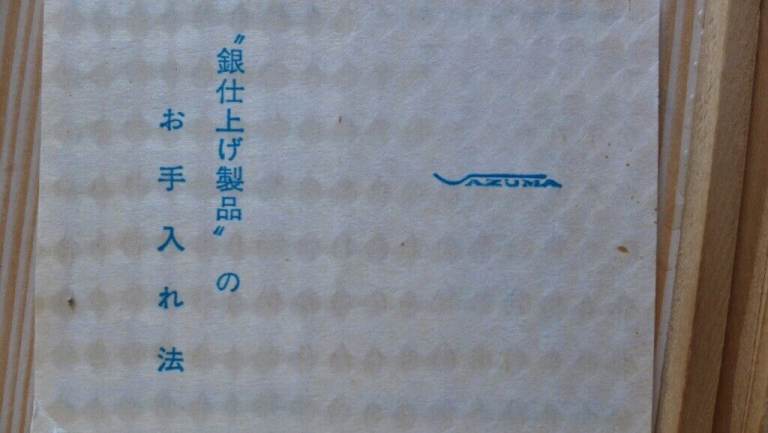 AZUMA
〝銀仕上げ製品〟の
お手入れ法